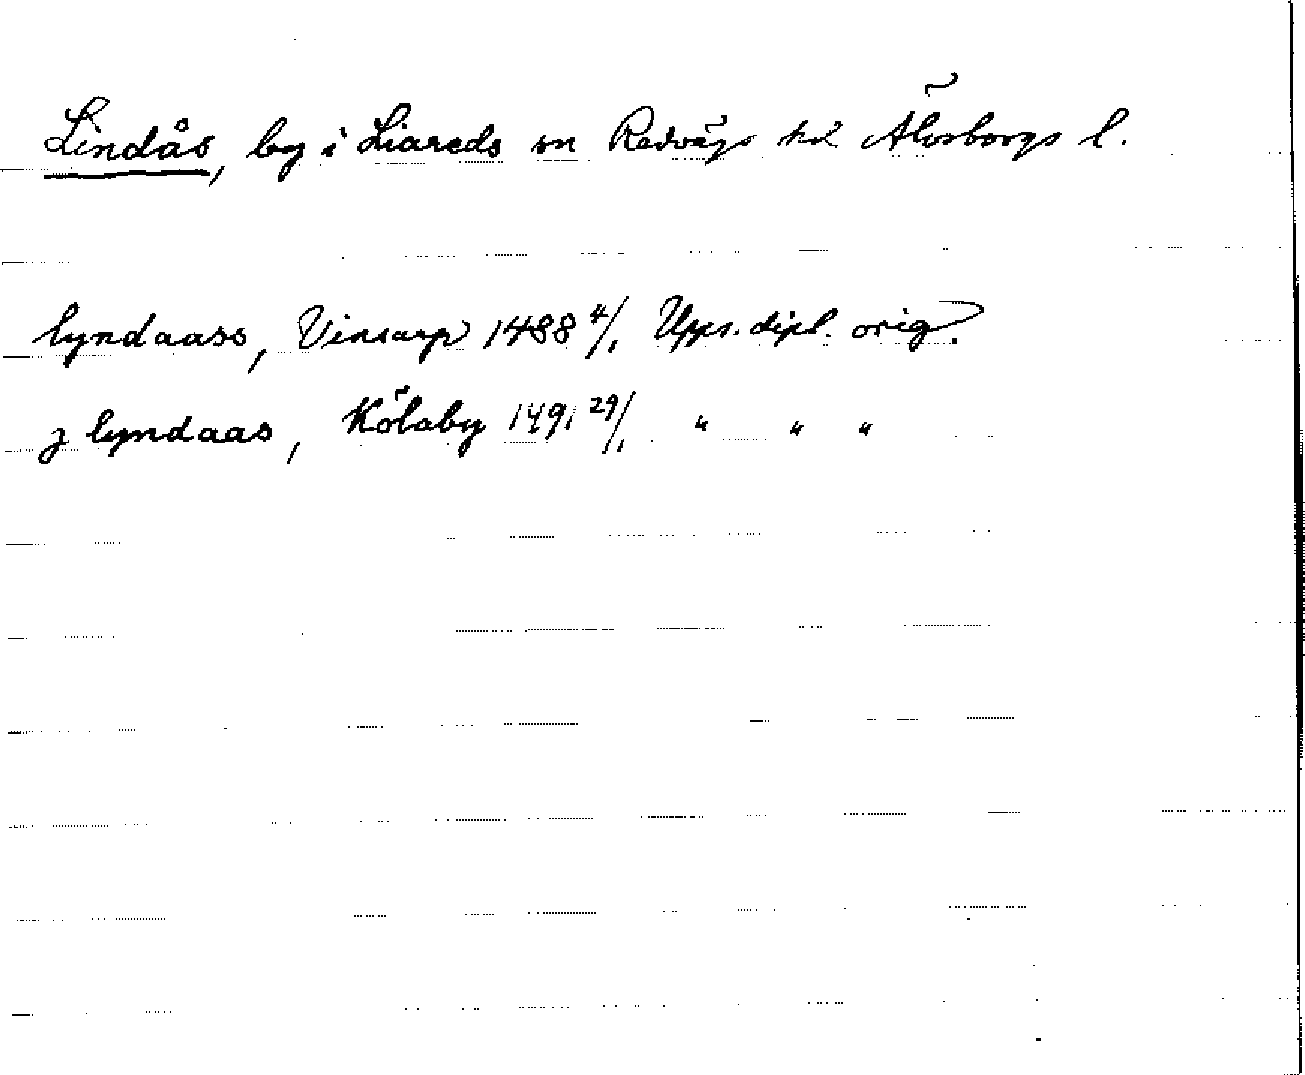 Lindås, by i Liareds sn Redvägs hd Älvsborgs l.
lyndaass, Vinsarp 1488 4/1 Upps. dipl. orig.
j lyndaas, Kölaby 1491 29/1 " " "